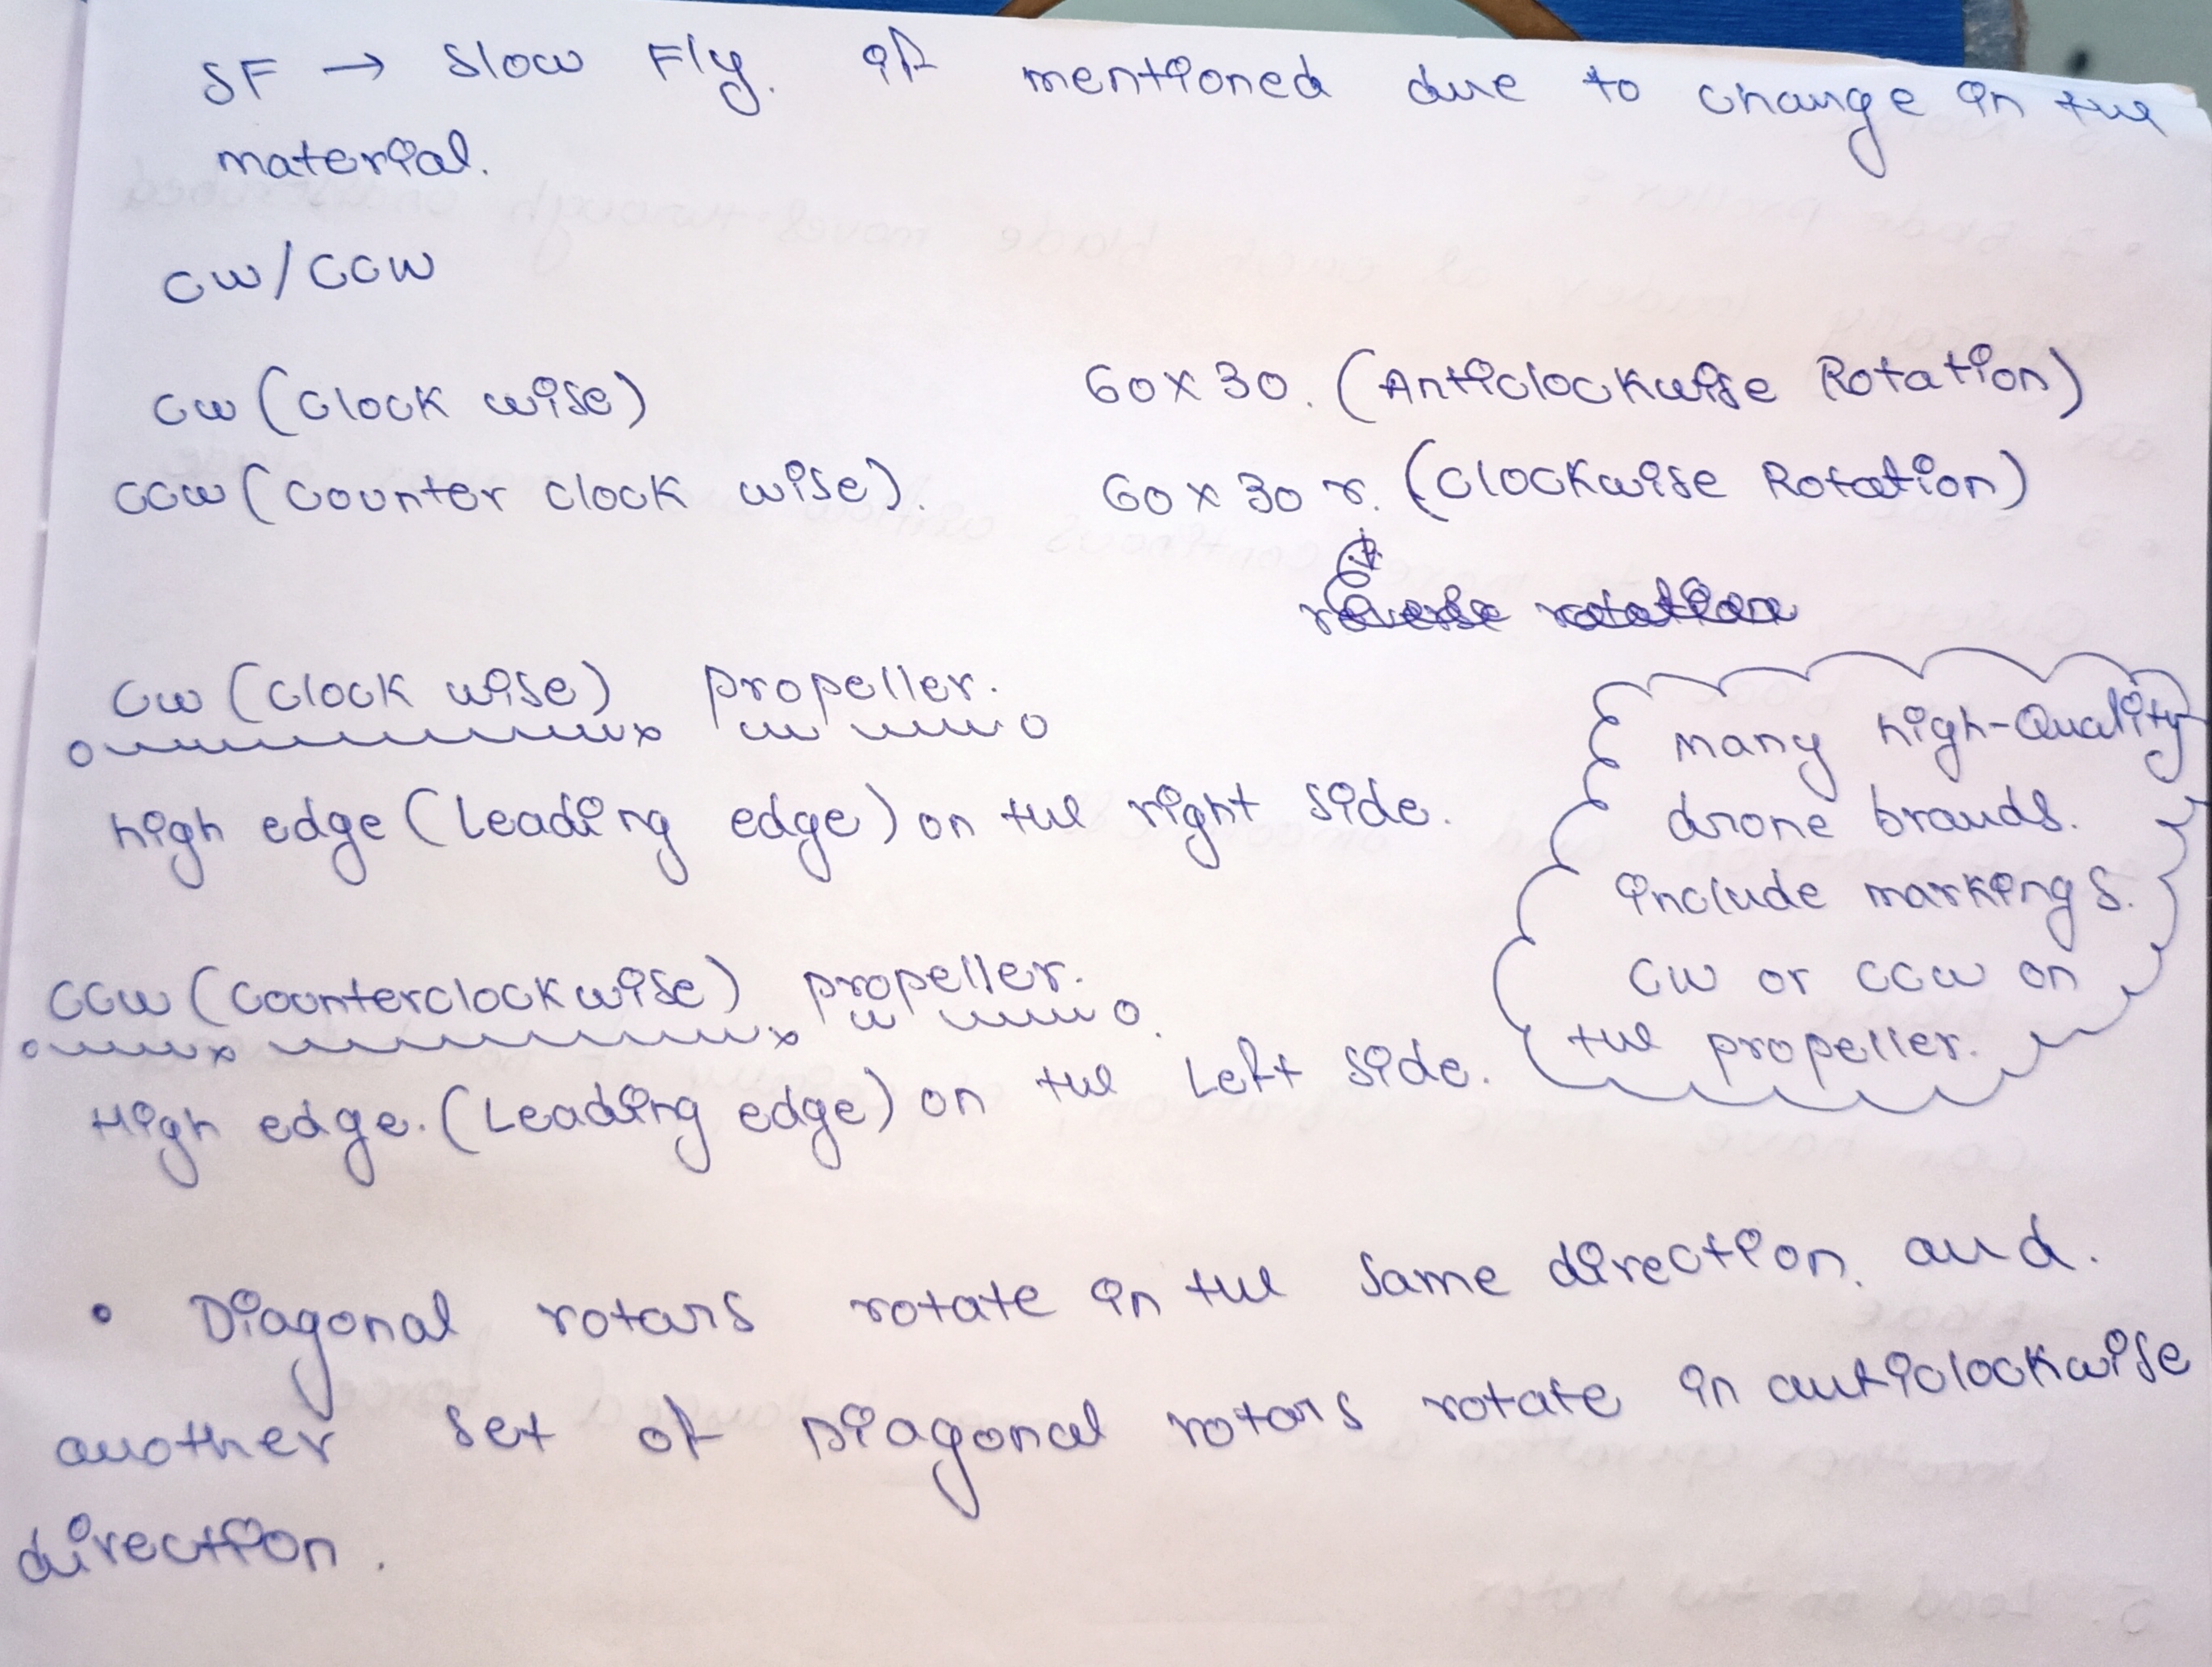 SF → Slow Fly. if mentioned due to change in the
material.
CW/CCW
CW (Clock wise)
CCW (Counter clock wise).
60x30. (Anticlockwise Rotation)
60x30 r. (Clockwise Rotation)
reverse rotation
CW (Clock wise) propeller.
high edge (Leading edge) on the right side.
CCW (Counterclockwise) propeller.
High edge. (Leading edge) on the Left side.
many high-Quality
drone brands.
include markings.
CW or CCW on
the propeller.
• Diagonal rotors rotate in the same direction, and.
another set of Diagonal rotors rotate in anticlockwise
direction.